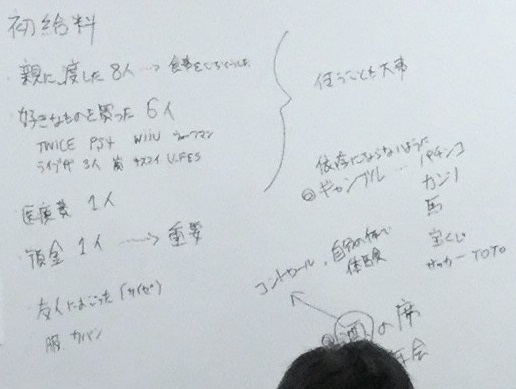 初給料
・親に渡した 8人 ……→ 食事をごちそうした
・好きなものを買った 6人
TWICE PS4 WiiU ウォークマン
ライブ 3人 嵐 サスマイ U.FES
・医療費 1人
・預金 1人 ……→ 重要
・友人におごった (サイゼ)
服 カバン
使うことも大事
依存にならないように
◎ギャンブル … パチンコ
カジノ
馬
宝くじ
サッカー TOTO
コントロール, 自分の体で
体験
酒の席